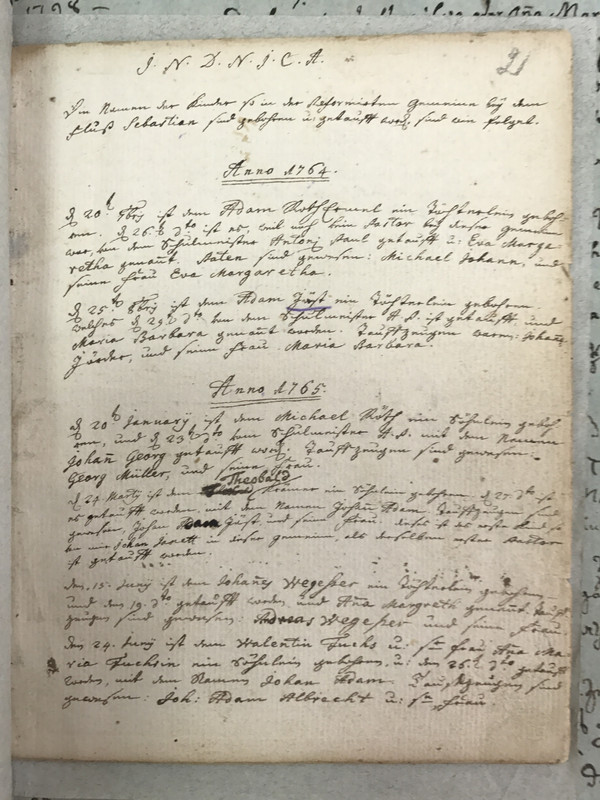 1798
J. N. D. N. J. C. A.
21
Die Namen der Kinder so in der Reformirten Gemeine bey dem
Fluß Sebastian sind gebohren u: getaufft word. sind wie folget.
Anno 1764.
d 20t 9bris ist dem Adam ein Töchterlein geboh-
ren. d 26t dto ist es, weil noch kein Pastor bey dieser gemein
war, von dem Schulmeister Antonj Paul getaufft u: Eva Marga
retha genant. Paten sind gewesen: Michael Johann, und
seine Frau Eva Margaretha.
d 25to 9bris ist dem Adam Jüst ein Töchterlein gebohren.
welches d 29t dto von dem Schulmeister A. P. ist getaufft und
Maria Barbara genant worden. Tauffzeugen waren: Johan
und seine Frau Maria Barbara.
Anno 1765.
d 20t January ist dem Michael Röth ein Söhnlein geboh
ren, und d 23t dto vom Schulmeister A. P. mit dem Namen
Johan Georg getaufft word. Tauffzeugen sind gewesen:
Georg Müller, und seine Frau.
Theobald
d 24 Martij ist dem Kramer ein Söhnlein gebohren. d 27 dto ist
es getaufft worden, mit dem Namen Johan Adam. Tauffzeugen sind
gewesen, Johan Adam Jüst und seine Frau. dieses ist das erste Kind so
von mir Johan in dieser gemein, als derselben erster Pastor
ist getaufft worden.
den 15. Junij ist dem Johanes Wegesser ein Töchterlein gebohren
und den 19. dto getaufft worden und Ana Margreth genant. Tauff
zeugen sind gewesen: Wegesser und seine Frau.
den 24. Junij ist dem Walentin Fuchs u: sr Frau Ana Ma
ria Fuchsin ein Söhnlein gebohren, u: den 26t dto getaufft
worden, mit dem Namen Johan Adam. Tauffzeugen sind
gewesen: Joh: Adam Albrecht u: sr Frau.